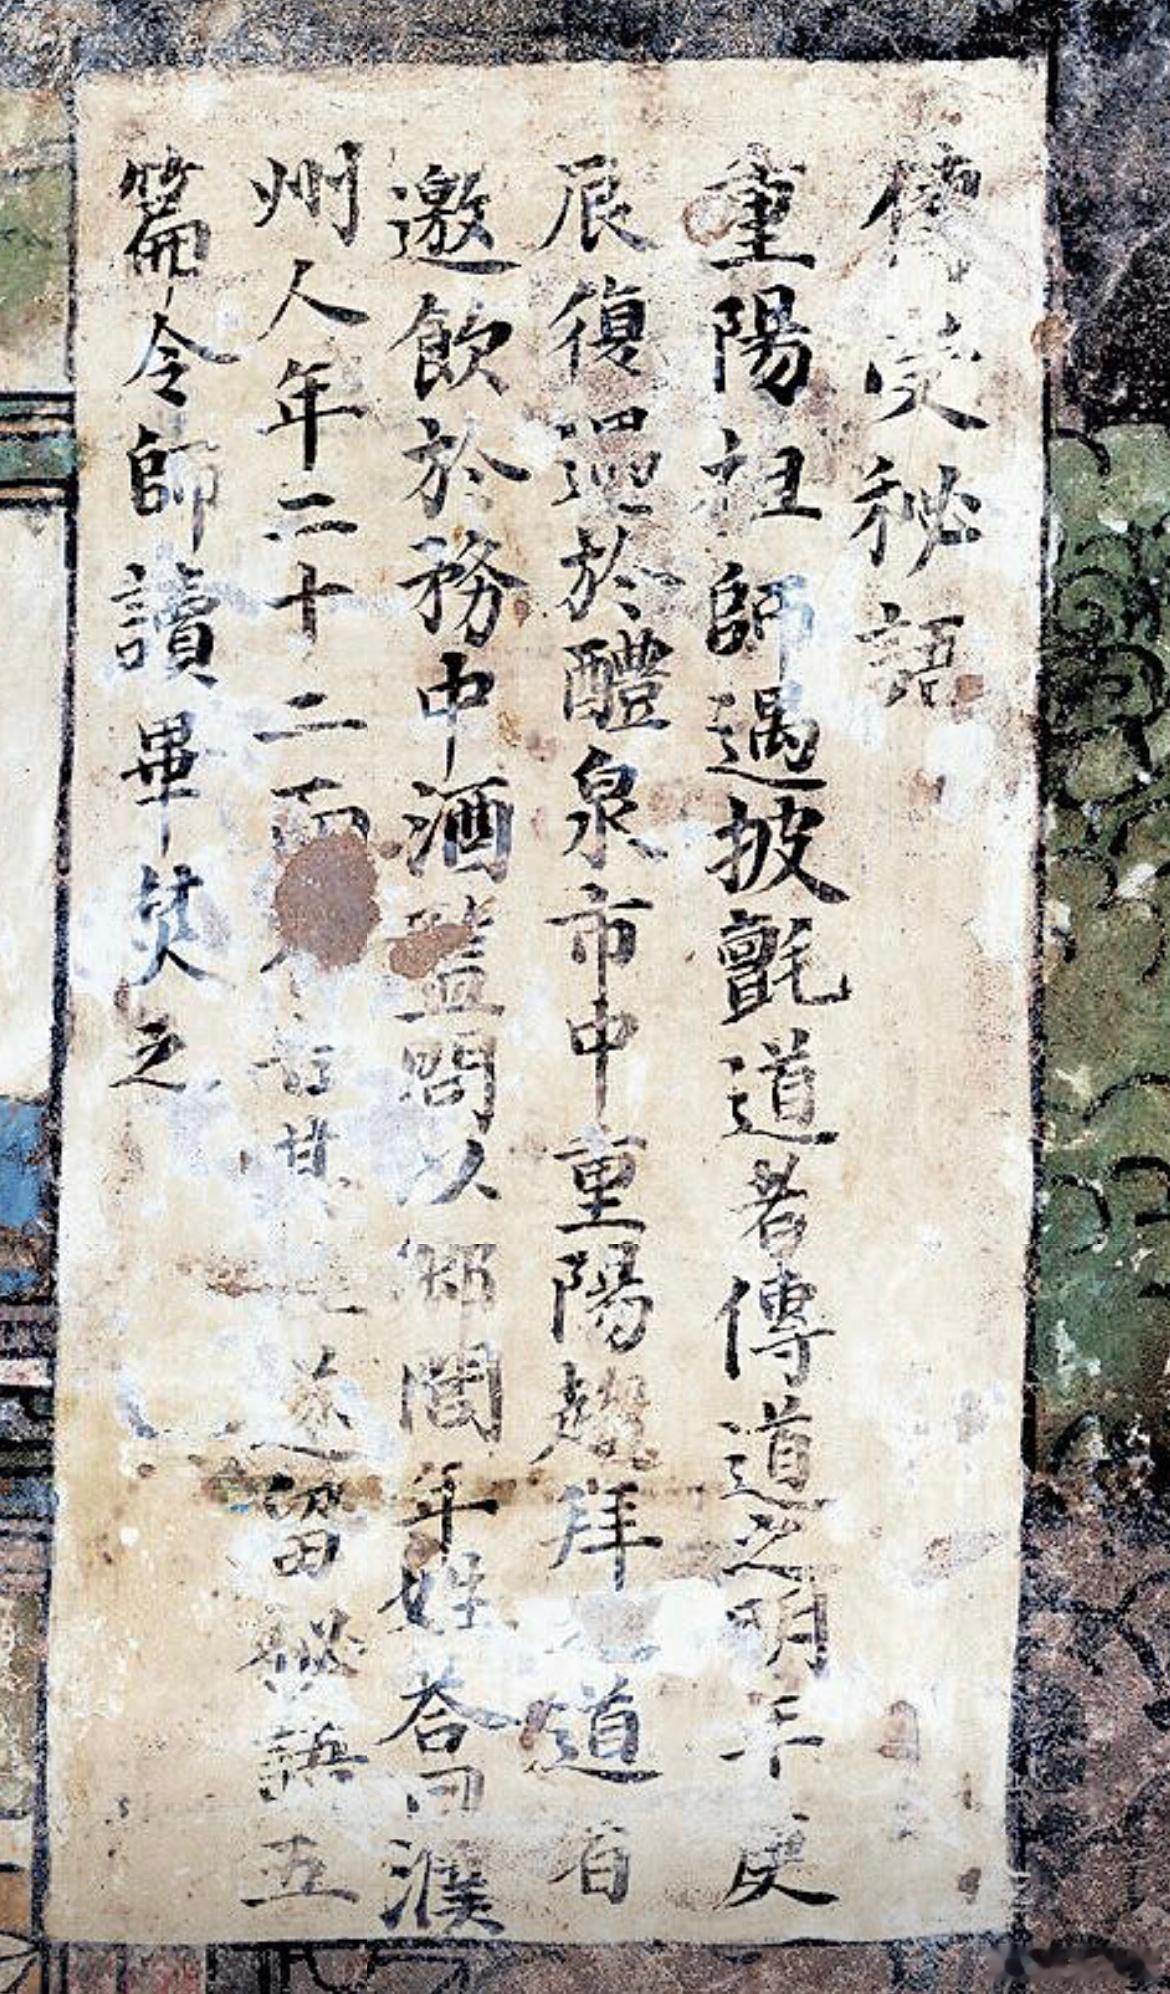 傳受秘語
重陽祖師遇披氈道者傳道之明年庚
辰復遇於醴泉市中重陽趨拜道者
邀飲於務中酒䇺問以鄉閭年姓荅曰濮
州人年二十二而遂留秘語五
篇令師讀畢焚之